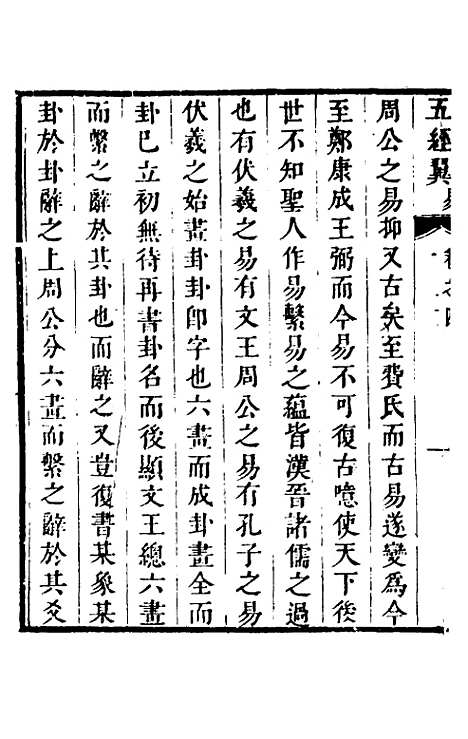 五經翼 易 卷之四 一
周公之易抑又古矣至費氏而古易遂變爲今
至鄭康成王弼而今易不可復古噫使天下後
世不知聖人作易繫易之蘊皆漢晉諸儒之過
也有伏羲之易有文王周公之易有孔子之易
伏羲之始畫卦卦卽字也六畫而成卦畫全而
卦已立初無待再書卦名而後顯文王總六畫
而繫之辭於其卦也而辭之又豈復書某象某
卦於卦辭之上周公分六畫而繫之辭於其爻